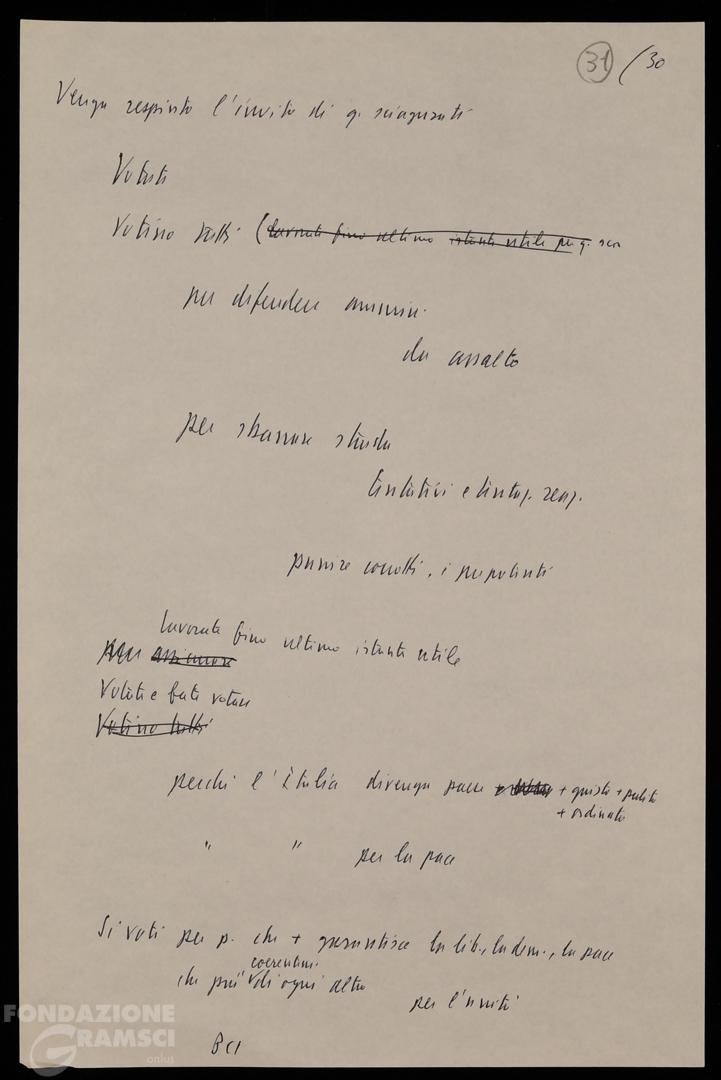 31 / 30
Venga respinto l'invito di q. sciagurati
Votati
Votino tutti (lavorate fino ultimo istante utile per q.
per difendere ammin.
da assalto
per sbarrare strada
tentativi e tentaz. reaz.
punire corrotti, i prepotenti
lavorate fino ultimo istante utile
per assicurare
Votate e fate votare
Votino tutti
perché l'Italia divenga paese + giusto + pulito
+ ordinato
" " per la pace
Si voti per p. che + garantisce la lib., la dem., la pace
coerentem.
che più di ogni altro
per l'unità
PCI
FONDAZIONE
GRAMSCI
onlus